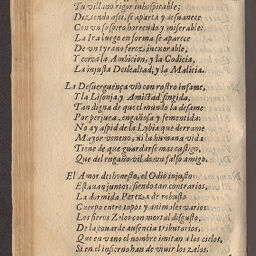 Tu villano rigor inhospitable;
Diziendo assi, se aparta y desuanece
Con vn sospiro horrendo y miserable:
La Ira luego en forma se aparece
De vn tyrano feroz inexorable,
Y cerca la Ambicion, y la Codicia,
La injusta Deslealtad, y la Malicia.
La Desuerguença vio con rostro infame,
Tla Lisonja, y Amistad fingida,
Tan digna de que el mundo la desame
Por perjura, engañosa y fementida:
No ay aspid de la Lybia que derrame
Mayor veneno, ni la humana vida
Tiene de que guardarse mas castigo,
Que del engaño vil de vn falso amigo.
El Amor deshonesto, el Odio injusto
Estauan juntos, siendo tan contrarios,
La dormida Pereza de robusto
Cuerpo entre topos y animales varios:
Los fieros Zelos con mortal disgusto,
De la couarde ausencia tributarios,
Que en vano el nombre imitan a los cielos,
Si en el infierno han de viuir los zelos.